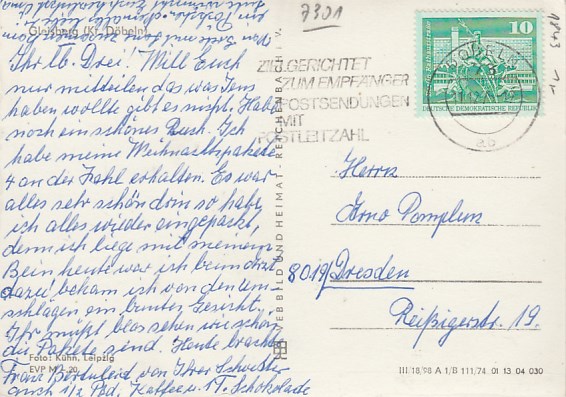 7301
Gleisberg (Kr. Döbeln)
Ihr lb. Drei! Will Euch
nur mitteilen das was Jens
haben wollte gibt es nicht. Habe
noch ein schönes Buch. Ich
habe meine Weihnachtspakete
4 an der Zahl erhalten. Es war
alles sehr schön drin so habe
ich alles wieder eingepackt,
denn ich liege mit meinem
Bein heute war ich beim Arzt
dazu bekam ich von den
schlagen ein buntes Gesicht.
Ihr müßt blos sehen wie schön
die Pakete send. Heute brachte
Frau von Ihrer Schwester
auch 1/2 Pfd. Kaffee u. 1T. Schokolade
Foto: Kühn, Leipzig
EVP M -.20
VEB BILD UND HEIMAT · REICHENBACH I. V.
ZIELGERICHTET
ZUM EMPFÄNGER
POSTSENDUNGEN
MIT
POSTLEITZAHL
10
DEUTSCHE DEMOKRATISCHE REPUBLIK
Herrn
Arno Pomplun
8019 Dresden
Reißigerstr. 19.
III/18/98 A 1/B 111/74 01 13 04 030